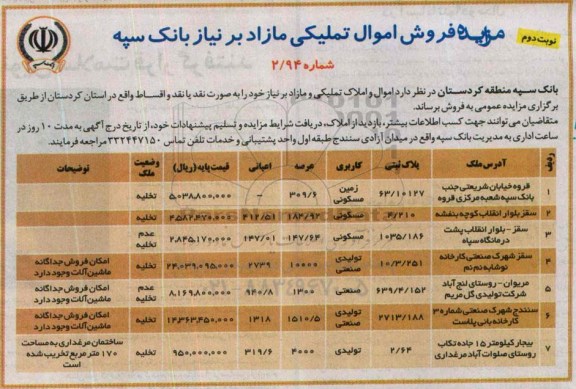 نوبت دوم
مزایده فروش اموال تملیکی مازاد بر نیاز بانک سپه
شماره ۲/۹۴
بانک سپه منطقه کردستان در نظر دارد اموال و املاک تملیکی و مازاد بر نیاز خود را به صورت نقد یا نقد و اقساط واقع در استان کردستان از طریق
برگزاری مزایده عمومی به فروش برساند.
متقاضیان می توانند جهت کسب اطلاعات بیشتر، بازدید از املاک، دریافت شرایط مزایده و تسلیم پیشنهادات خود، از تاریخ درج آگهی به مدت ۱۰ روز در
ساعت اداری به مدیریت بانک سپه واقع در میدان آزادی سنندج طبقه اول واحد پشتیبانی و خدمات تلفن تماس ۳۳۲۴۴۷۱۵۰ مراجعه فرمایند.
ردیف آدرس ملک پلاک ثبتی کاربری عرصه اعیانی قیمت پایه (ریال) وضعیت ملک توضیحات
۱ قروه خیابان شریعتی جنب بانک سپه شعبه مرکزی قروه ۶۳/۱۰۱۲۷ زمین مسکونی ۳۰۹/۶ – ۵,۰۳۸,۸۰۰,۰۰۰ تخلیه
۲ سقز بلوار انقلاب کوچه بنفشه ۴/۲۱۰ مسکونی ۱۸۳/۹۲ ۴۱۲/۵۱ ۴,۵۸۲,۴۷۰,۰۰۰ تخلیه
۳ سقز - بلوار انقلاب پشت درمانگاه سپاه ۱۰۳۵/۱۸۶ مسکونی ۱۴۷/۶۴ ۱۴۷/۰۱ ۲,۸۴۵,۱۷۰,۰۰۰ عدم تخلیه
۴ سقز شهرک صنعتی کارخانه نوشابه نم نم ۱۰/۳/۲۵۱ تولیدی صنعتی ۱۰۰۰۰ ۲۷۳۹ ۲۴,۰۳۹,۰۹۵,۰۰۰ تخلیه امکان فروش جداگانه ماشین آلات وجود دارد
۵ مریوان - روستای لنج آباد شرکت تولیدی گل مریم ۶۳۹/۴/۱۵۲ صنعتی ۱۳۰۰ ۹۴۰/۸ ۸,۱۶۹,۸۰۰,۰۰۰ عدم تخلیه امکان فروش جداگانه ماشین آلات وجود دارد
۶ سنندج شهرک صنعتی شماره ۳ کارخانه بانی پلاست ۲۷۱۳/۱۸۸ تولیدی صنعتی ۱۵۱۰/۵ ۱۳۱۸ ۱۴,۳۶۳,۴۵۰,۰۰۰ تخلیه امکان فروش جداگانه ماشین آلات وجود دارد
۷ بیجار کیلومتر ۱۵ جاده تکاب روستای صلوات آباد مرغداری ۲/۶۴ تولیدی ۴۰۰۰ ۳۱۹/۶ ۹۵۰,۰۰۰,۰۰۰ تخلیه ساختمان مرغداری به مساحت ۱۷۰ متر مربع تخریب شده است